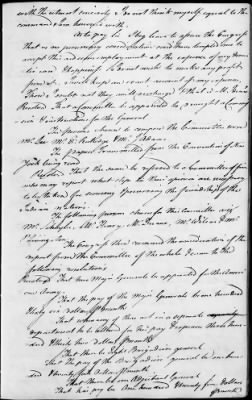 with the utmost sincerity, I do not think myself equal to the
command I am honored with
As to pay, Sir, I beg leave to assure the Congress
that as no pecuniary consideration could have tempted me to
accept this arduous employment at the expence of my
I do not wish to make any profit
from it. I will keep an exact account of my expences
I doubt not they will discharge & that is all I desire
Resolved That a committee be appointed to draught a Commission
for the General
The persons chosen to compose the Committee were
Mr. Lee, Mr. E. Rutledge & Mr. J Adams
from the Convention of New
York being read
Resolved That the same be referred to a Committee of five
who may report what steps in their opinion are necessary
to be taken for securing & preserving the friendship of the
Indian Nations
The following persons chosen for this Committee viz
Mr. Schuyler, Mr. Henry, Mr. Duane, Mr. Wilson & Mr.
Livingston
The Congress then resumed the consideration of the
report from the Committee of the whole &
following resolutions
Resolved That two Major Generals be appointed for the American
Army
That the pay of the Major Generals be one hundred
sixty six dollars month
That when any of them act in a separate
department he be allowed for his pay & expences three hundred
thirty two dollars month
That there be Brigadiers general
That the pay of the Brigadiers general be one hundred
twenty five dollars month
That there be one Adjutant General
That his pay be One hundred & twenty five dollars
month